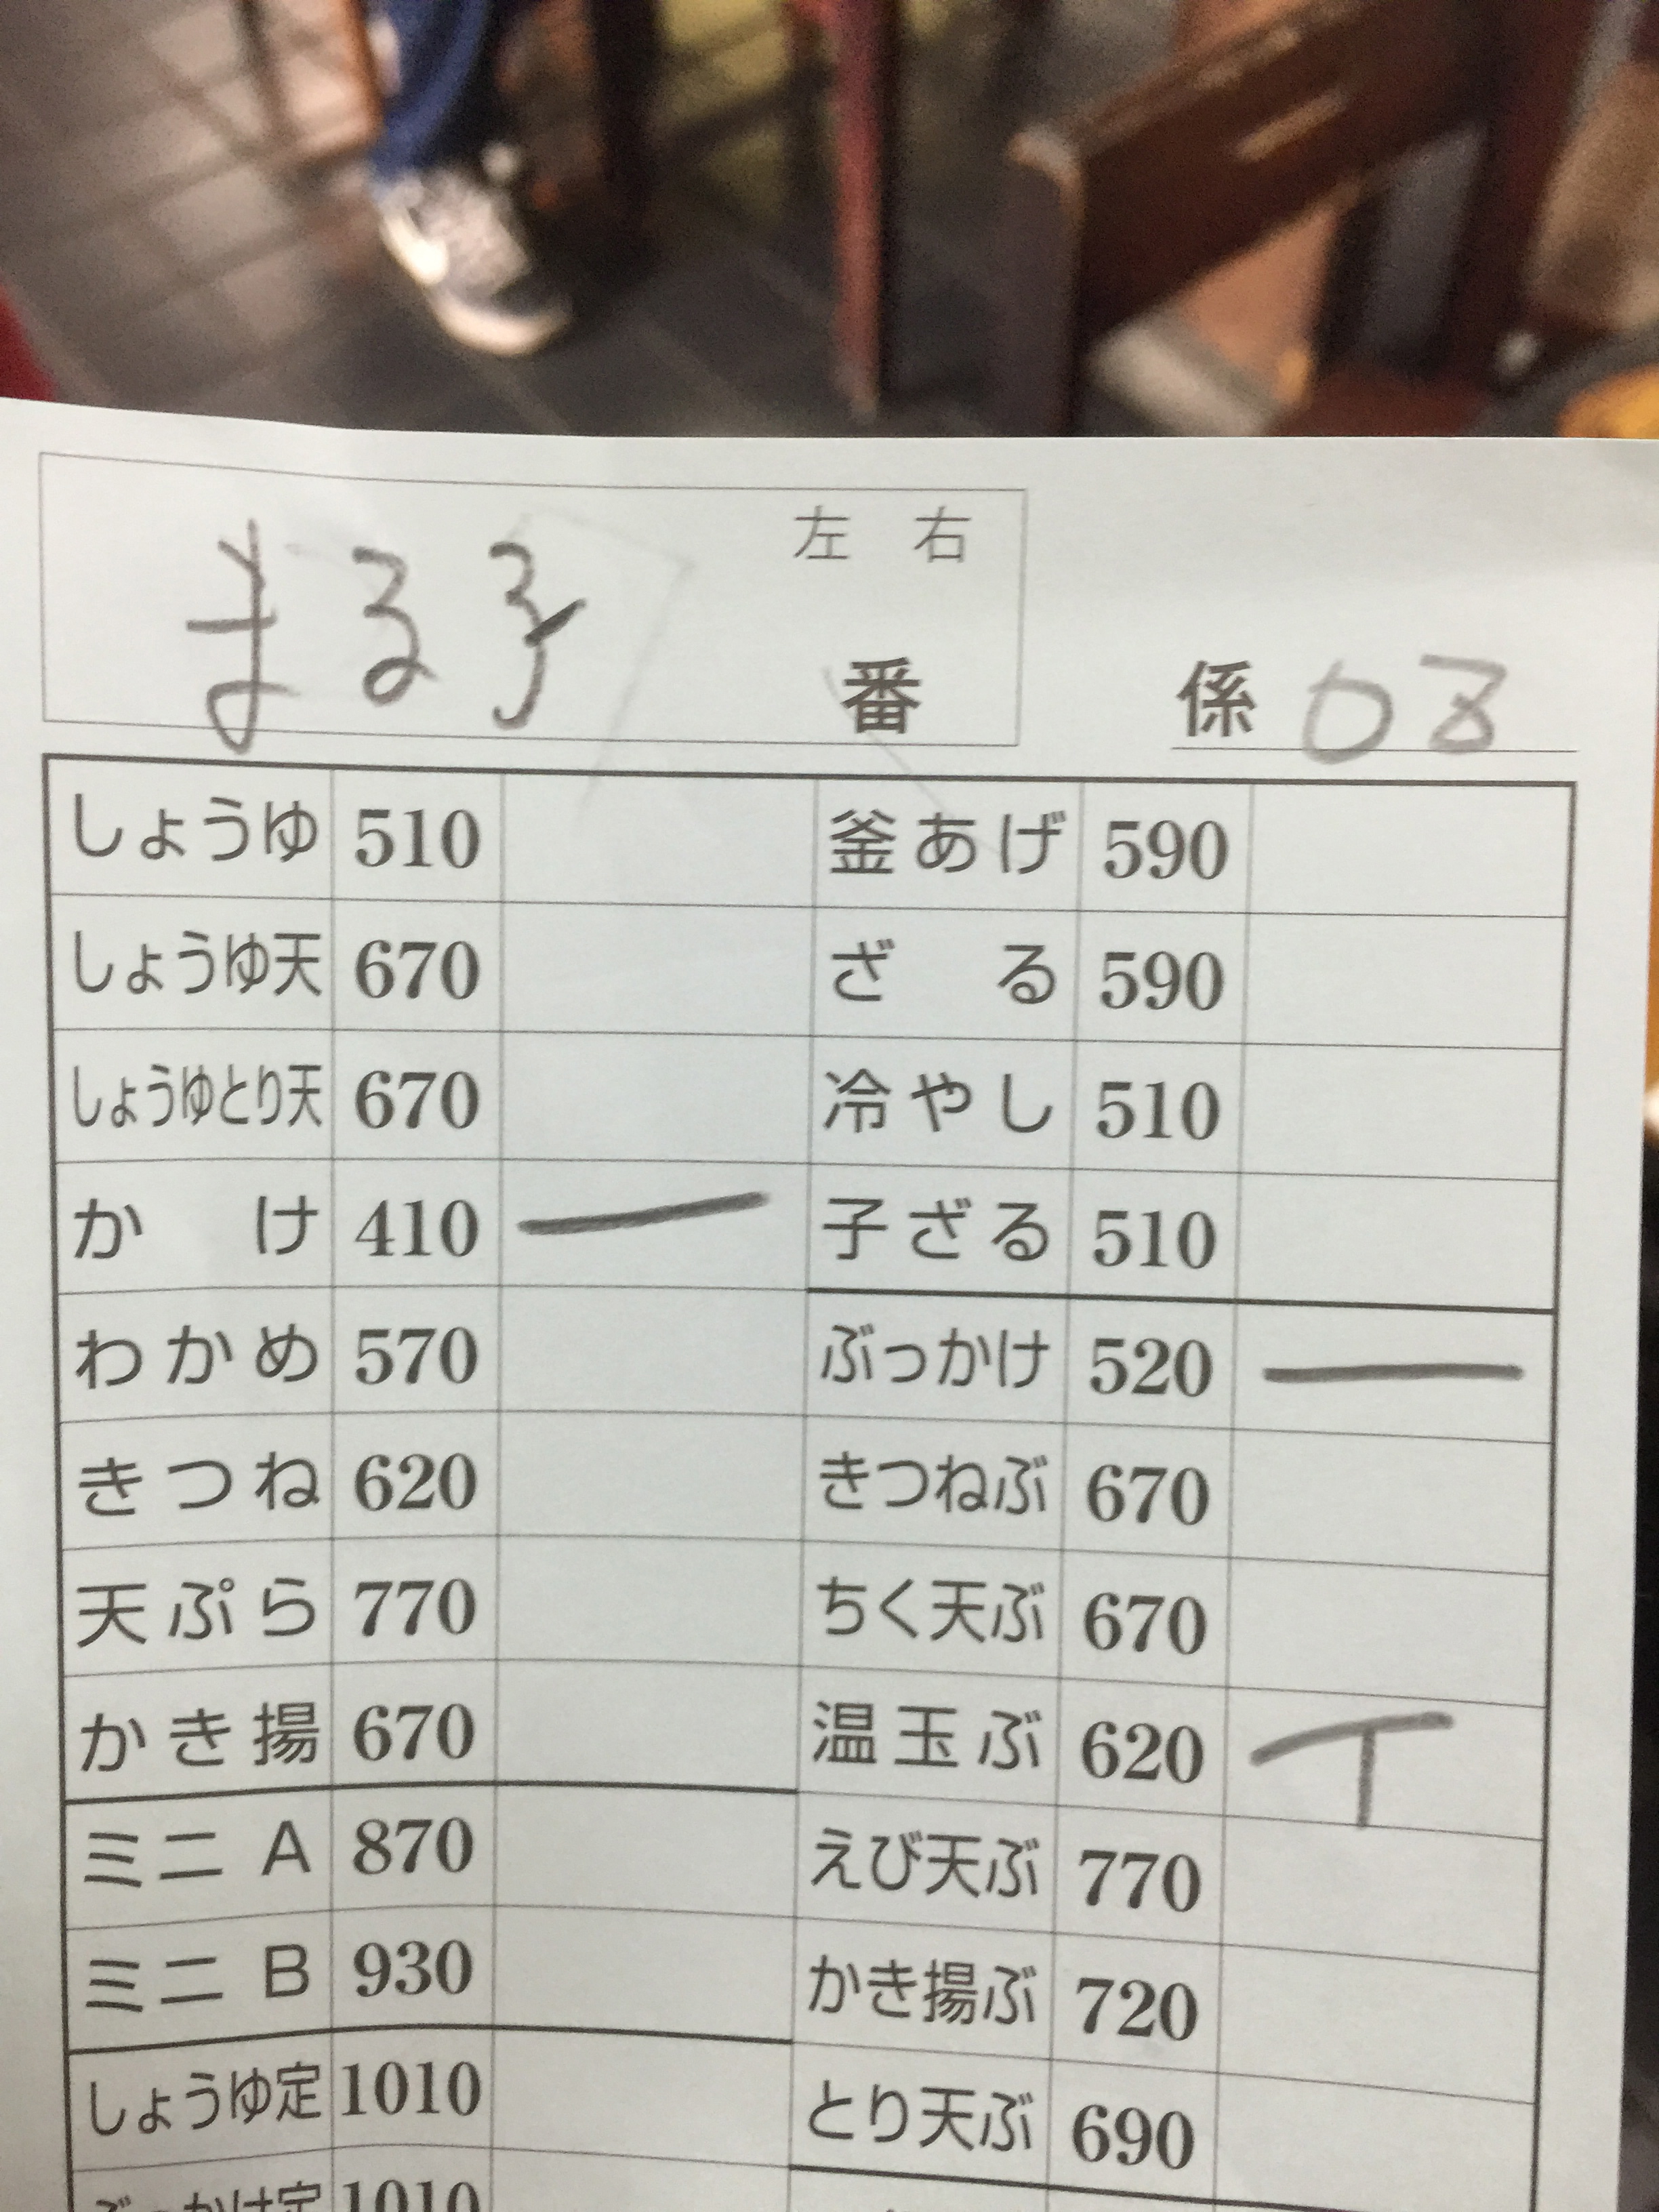 左 右
まる子
番 係 08
しょうゆ 510 釜あげ 590
しょうゆ天 670 ざる 590
しょうゆとり天 670 冷やし 510
かけ 410 一 子ざる 510
わかめ 570 ぶっかけ 520 一
きつね 620 きつねぶ 670
天ぷら 770 ちく天ぶ 670
かき揚 670 温玉ぶ 620 丅
ミニA 870 えび天ぶ 770
ミニB 930 かき揚ぶ 720
しょうゆ定 1010 とり天ぶ 690
ぶっかけ定 1010